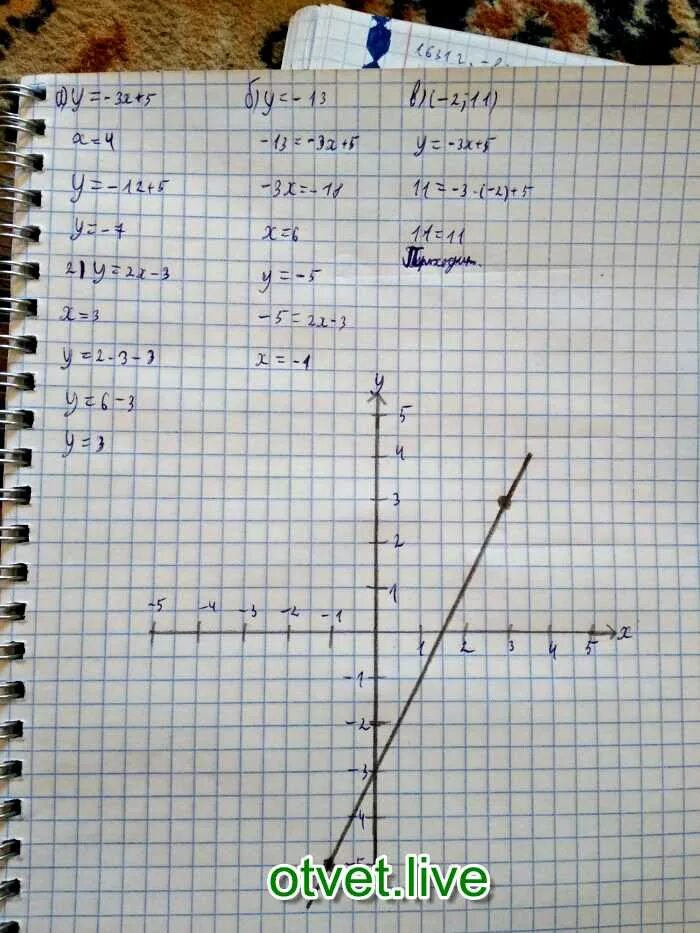 1631 г.
а) y = -3x+5
x=4
y = -12+5
y = -7
б) y = -13
-13 = -3x+5
-3x = -18
x=6
в) (-2; 11)
y = -3x+5
11 = -3·(-2)+5
11 = 11
Проходит.
2) y = 2x-3
x=3
y = 2·3-3
y = 6-3
y = 3
y = -5
-5 = 2x-3
x = -1
y
5
4
3
2
1
-5 -4 -3 -2 -1
1 2 3 4 5 x
-1
-2
-3
-4
-5
otvet.live